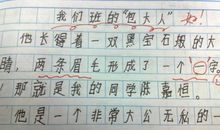 我们班的"包大人"
他长得着一双黑宝石般的大
睛，两条眉毛形成了一个一字。
那就是我的同学陈嘉恒。
他是一个非常大公无私的